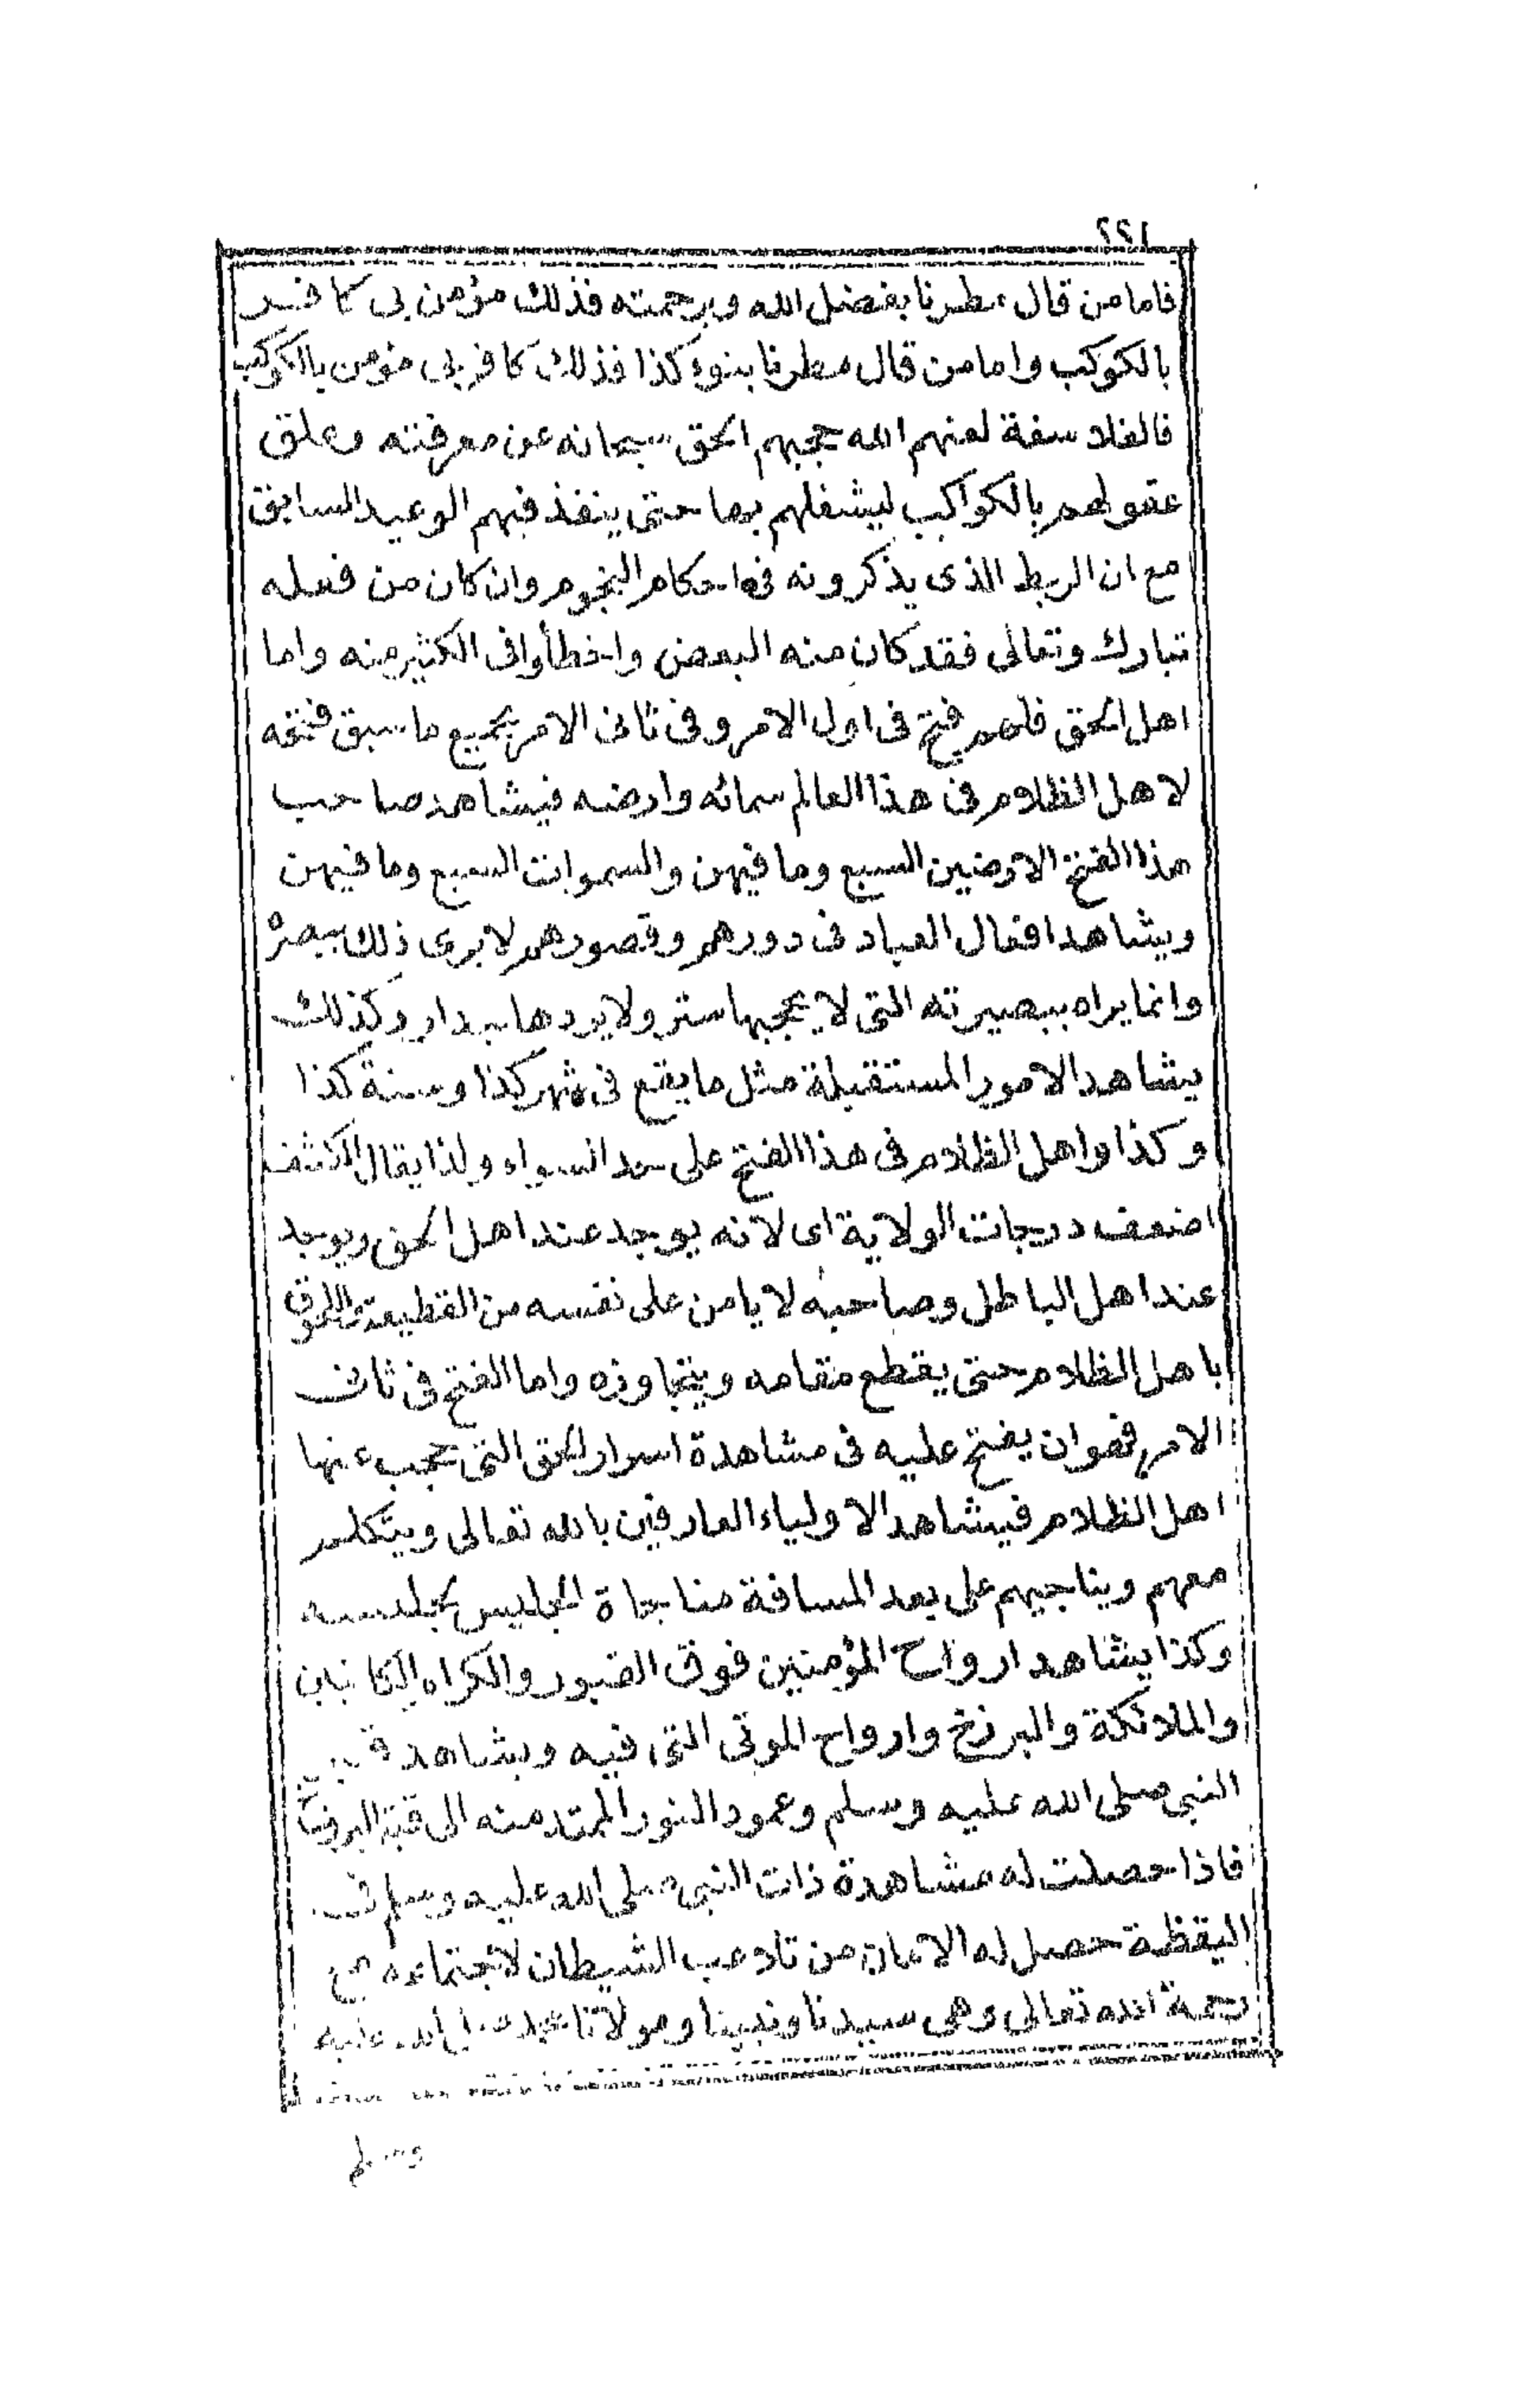 ٢٢١
فامامن قال مطرنا بفضل الله وبرحمته فذلك مؤمن بى كافر
بالكوكب وامامن قال مطرنا بنوء كذا فذلك كافر بى مؤمن بالكوكب
فالفلاسفة لعنهم الله حجبهم الحق سبحانه عن معرفته وعلق
عقولهم بالكواكب ليشغلهم بها حتى ينفذ فيهم الوعيد السابق
مع ان الربط الذى يذكرونه فى احكام النجوم وان كان من فعله
تبارك وتعالى فقد كان منه البعض واخطأوا فى الكثير منه واما
اهل الحق فلهم فتح فى اول الامر وفى ثانى الامر بجميع ما سبق فتحه
لاهل الظلام فى هذا العالم سمائه وارضه فيشاهد صاحب
هذا الفتح الارضين السبع وما فيهن والسموات السبع وما فيهن
ويشاهد افعال العباد فى دورهم وقصورهم لا يرى ذلك ببصره
وانما يراه ببصيرته التى لا يحجبها ستر ولا يردها جدار وكذلك
يشاهد الامور المستقبلة مثل ما يقع فى شهر كذا وسنة كذا
وكذا واهل الظلام فى هذا الفتح على حد السواء ولذا يقال الكشف
اضعف درجات الولاية اى لانه يوجد عند اهل الحق ويوجد
عند اهل الباطل وصاحبه لا يامن على نفسه من القطيعة واللحوق
باهل الظلام حتى يقطع مقامه ويتجاوزه واما الفتح فى ثانى
الامر فهو ان يفتح عليه فى مشاهدة اسرار الحق التى حجب عنها
اهل الظلام فيشاهد الاولياء العارفين بالله تعالى ويتكلم
معهم ويناجيهم على بعد المسافة مناجاة الجليس لجليسه
وكذا يشاهد ارواح المؤمنين فوق القبور والكرام الكاتبين
والملائكة والبرزخ وارواح الموتى التى فيه ويشاهد قبر
النبى صلى الله عليه وسلم وعمود النور الممتد منه الى قبة البرزخ
فاذا حصلت له مشاهدة ذات النبى صلى الله عليه وسلم فى
اليقظة حصل له الامان من تلاعب الشيطان لاجتماعه مع
رحمة الله تعالى وهى سيدنا ونبينا ومولانا محمد صلى الله عليه
وسلم